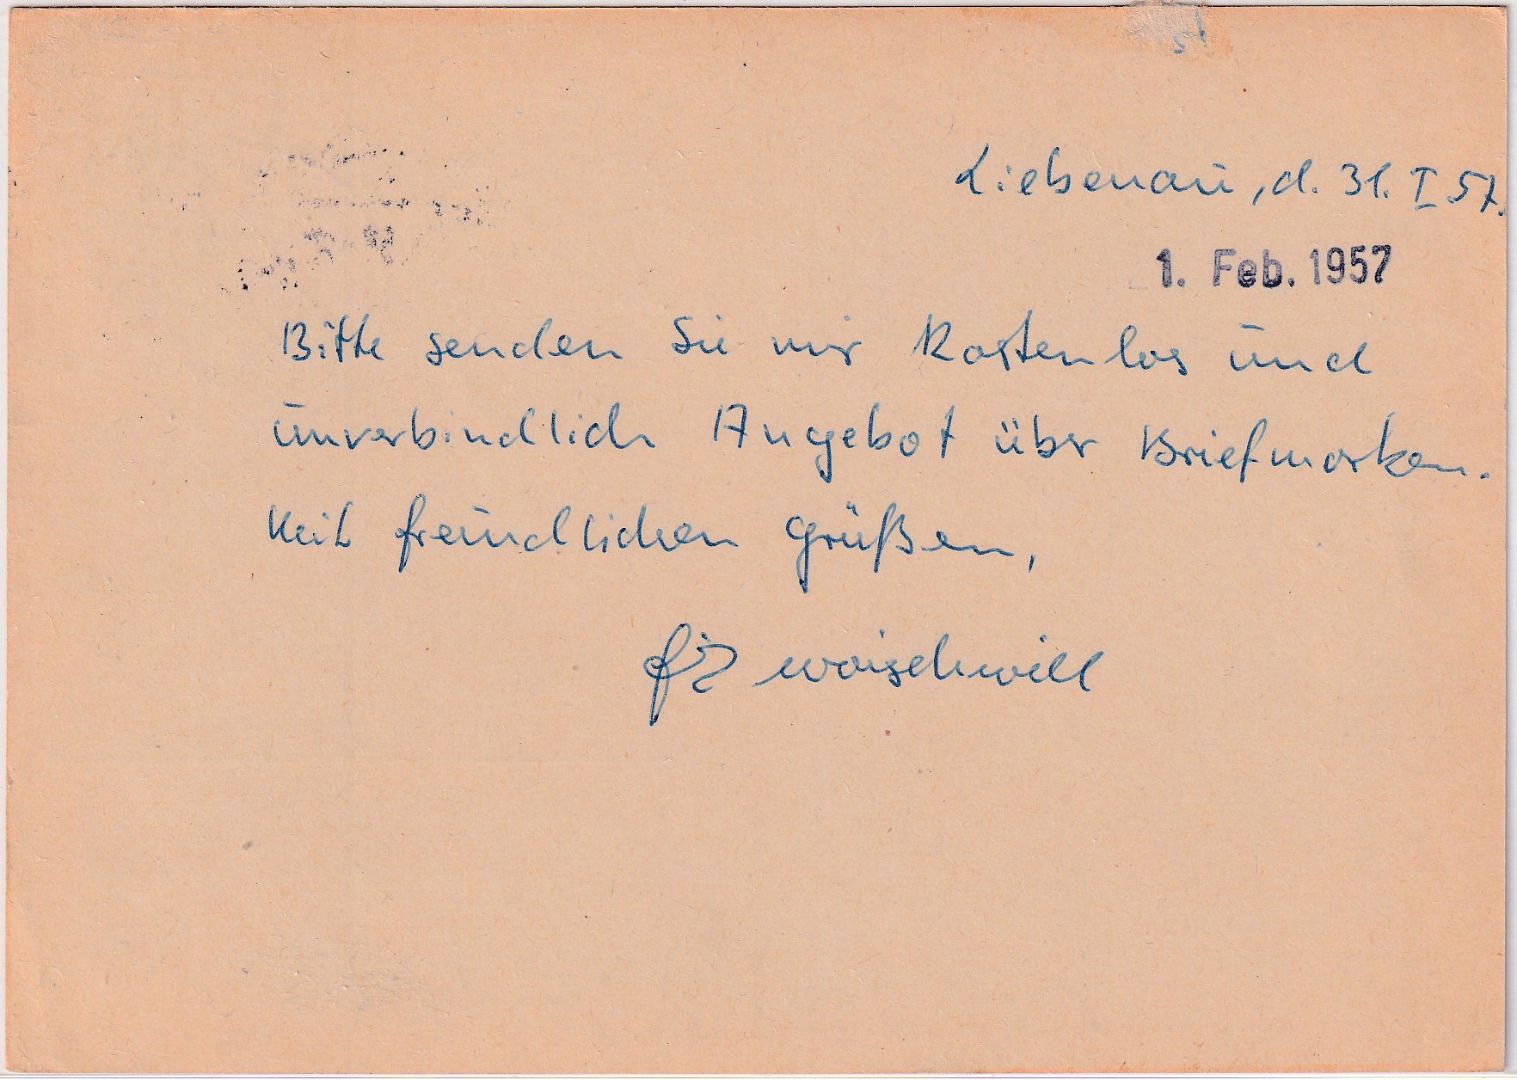 Liebenau, d. 31. I. 57.
1. Feb. 1957
Bitte senden Sie mir Kostenlos und
unverbindlich Angebot über Briefmarken.
Mit freundlichen Grüßen,
Woischwill